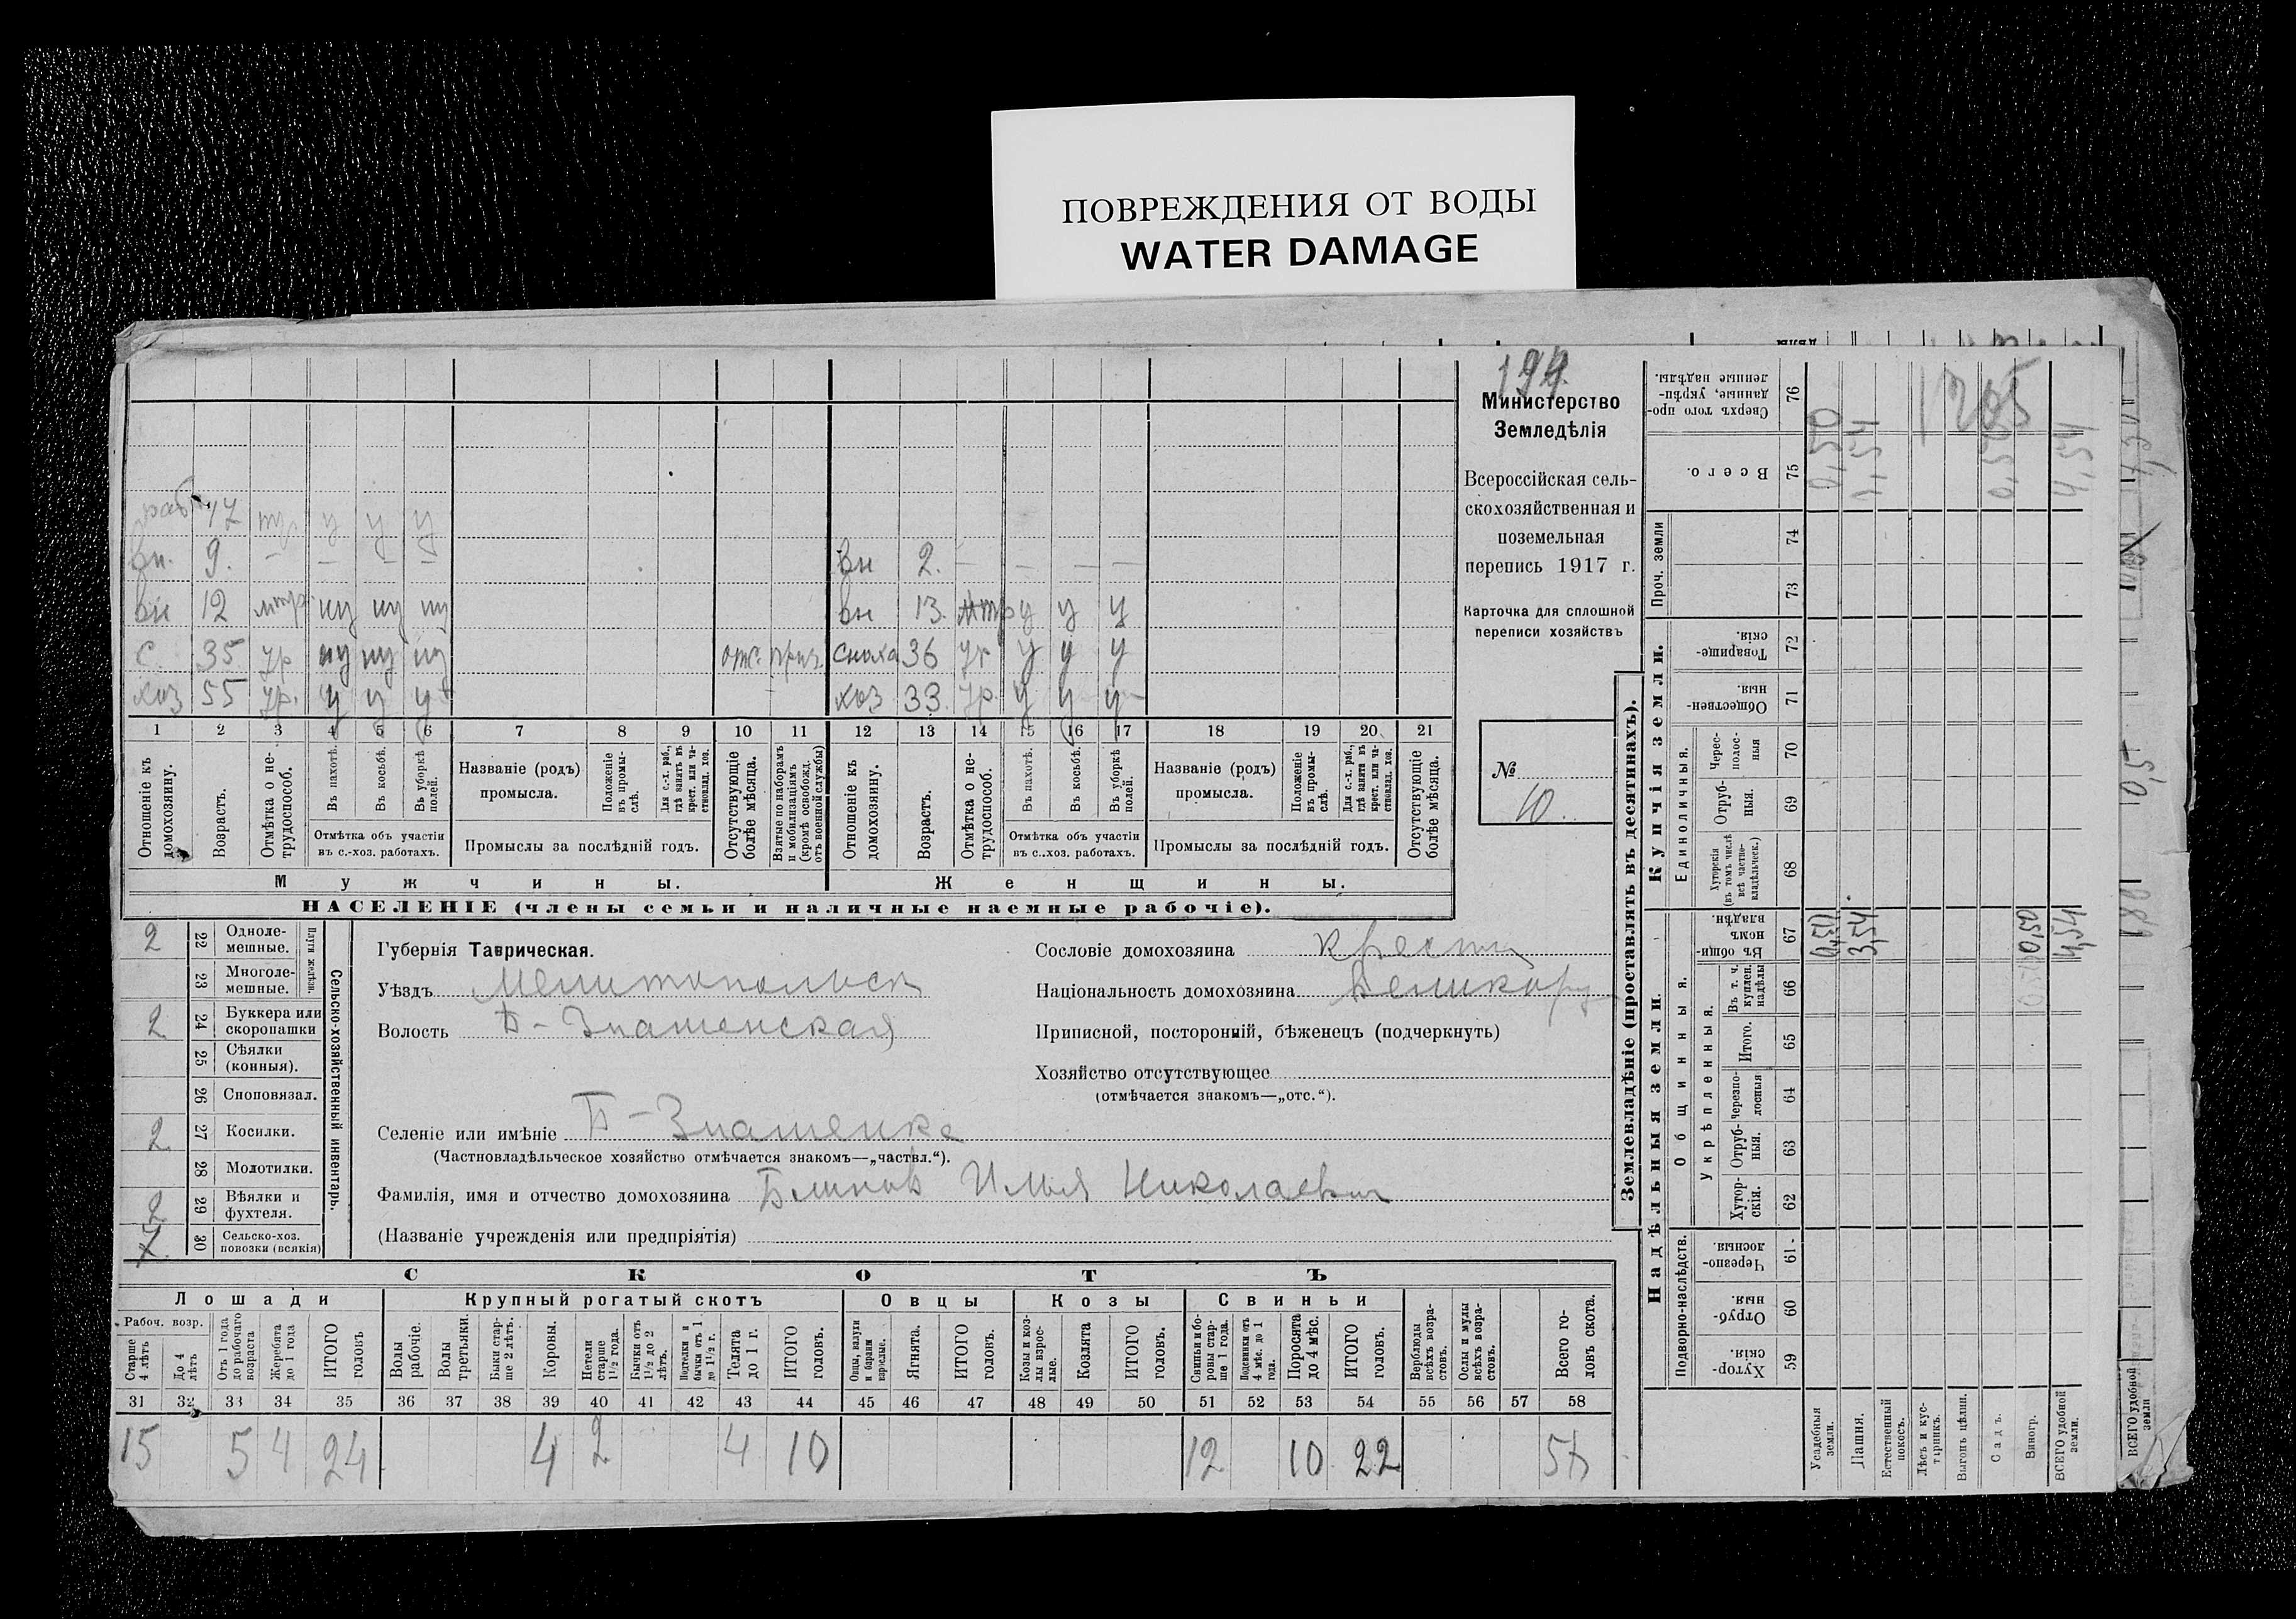 ПОВРЕЖДЕНИЯ ОТ ВОДЫ
WATER DAMAGE
194.
Министерство
Земледѣлія
Всероссійская сель-
скохозяйственная и
поземельная
перепись 1917 г.
Карточка для сплошной
переписи хозяйствъ
№
10.
раб. 17 тр у у у
вн. 9. — — — —
вн 2. — — — —
вн 12 нтр. ну ну ну
вн 13. нтр у у у
с. 35 ур ну ну ну отс. приз.
сноха 36 ур у у у
хоз 55 ур. у у у
хоз 33. ур. у у у
1 2 3 4 5 6 7 8 9 10 11 12 13 14 15 16 17 18 19 20 21
Отношеніе къ домохозяину.
Возрастъ.
Отмѣтка о не-трудоспособ.
Въ пахотѣ.
Въ косьбѣ.
Въ уборкѣ полей.
Отмѣтка объ участіи въ с.-хоз. работахъ.
Названіе (родъ) промысла.
Положеніе въ промы-слѣ.
Для с.-х. раб., гдѣ занятъ въ крест. или ча-стновлад. хоз.
Промыслы за послѣдній годъ.
Отсутствующіе болѣе мѣсяца.
Взятые по наборамъ и мобилизаціямъ (кромѣ освобожд. отъ военной службы)
Отношеніе къ домохозяину.
Возрастъ.
Отмѣтка о не-трудоспособ.
Въ пахотѣ.
Въ косьбѣ.
Въ уборкѣ полей.
Отмѣтка объ участіи въ с..хоз. работахъ.
Названіе (родъ) промысла.
Положеніе въ промы-слѣ.
Для с.-х. раб., гдѣ занята въ крест. или ча-стновлад. хоз.
Промыслы за послѣдній годъ.
Отсутствующіе болѣе мѣсяца.
Мужчины.
Женщины.
НАСЕЛЕНІЕ (члены семьи и наличные наемные рабочіе).
Сельско-хозяйственный инвентарь.
Плуги желѣзн.
2 22 Одноле-мешные.
23 Многоле-мешные.
2 24 Буккера или скоропашки
25 Сѣялки (конныя).
26 Сноповязал.
2 27 Косилки.
28 Молотилки.
2 29 Вѣялки и фухтеля.
30 Сельско-хоз. повозки (всякія)
Губернія Таврическая.
Уѣздъ Мелитопольск
Волость Б-Знаменская
Селеніе или имѣніе Б-Знаменка
(Частновладѣльческое хозяйство отмѣчается знакомъ—„частвл.“).
Фамилія, имя и отчество домохозяина Блинов Илья Николаевич
(Названіе учрежденія или предпріятія)
Сословіе домохозяина крестн
Національность домохозяина Великору
Приписной, посторонній, бѣженецъ (подчеркнуть)
Хозяйство отсутствующее
(отмѣчается знакомъ—„отс.“).
СКОТЪ
Лошади
Крупный рогатый скотъ
Овцы
Козы
Свиньи
Рабоч. возр.
Старше 4 лѣтъ
До 4 лѣтъ
Отъ 1 года до рабочаго возраста
Жеребята до 1 года
ИТОГО головъ
Волы рабочіе.
Волы третьяки.
Быки стар-ше 2 лѣтъ.
Коровы.
Нетели старше 1½ года.
Бычки отъ 1½ до 2 лѣтъ.
Нетелки и бычки отъ 1 до 1½ г.
Телята до 1 г.
ИТОГО головъ.
Овцы, валухи и бараны взрослые.
Ягнята.
ИТОГО головъ.
Козы и коз-лы взрос-лые.
Козлята
ИТОГО головъ.
Свиньи и бо-ровы стар-ше 1 года.
Подсвинки отъ 4 мѣс. до 1 года.
Поросята до 4 мѣс.
ИТОГО головъ.
Верблюды всѣхъ возра-стовъ.
Ослы и мулы всѣхъ возра-стовъ.
Всего го-ловъ скота.
31 32 33 34 35 36 37 38 39 40 41 42 43 44 45 46 47 48 49 50 51 52 53 54 55 56 57 58
15 5 4 24 4 2 4 10 12 10 22
Землевладѣніе (проставлять въ десятинахъ).
Надѣльныя земли.
Купчія земли.
Проч. земли
Подворно-наслѣдств.
Общинныя.
Укрѣпленныя.
Единоличныя.
Хутор-скія. 59
Отруб-ныя. 60
Черезпо-лосныя. 61
Хутор-скія. 62
Отруб-ныя. 63
Черезпо-лосныя 64
Итого. 65
Въ т. ч. куплен. надѣлы 66
Въ общи-номъ владѣн. 67
Хуторскія (въ томъ числѣ всѣ частно-владѣльческ.) 68
Отруб-ныя. 69
Черес-полос-ныя 70
Обществен-ныя. 71
Товарище-скія. 72
73
74
Всего. 75
Сверхъ того про-данные, укрѣп-ленные надѣлы. 76
Усадебныя земли. 0,50 0,50
Пашня. 3,54
Естественный покосъ.
Лѣсъ и кус-тарникъ.
Выгонъ цѣлин.
Садъ.
Виногр. 0,50
ВСЕГО удобной земли. 4,54 4,54
1705
ВСЕГО удобной земли